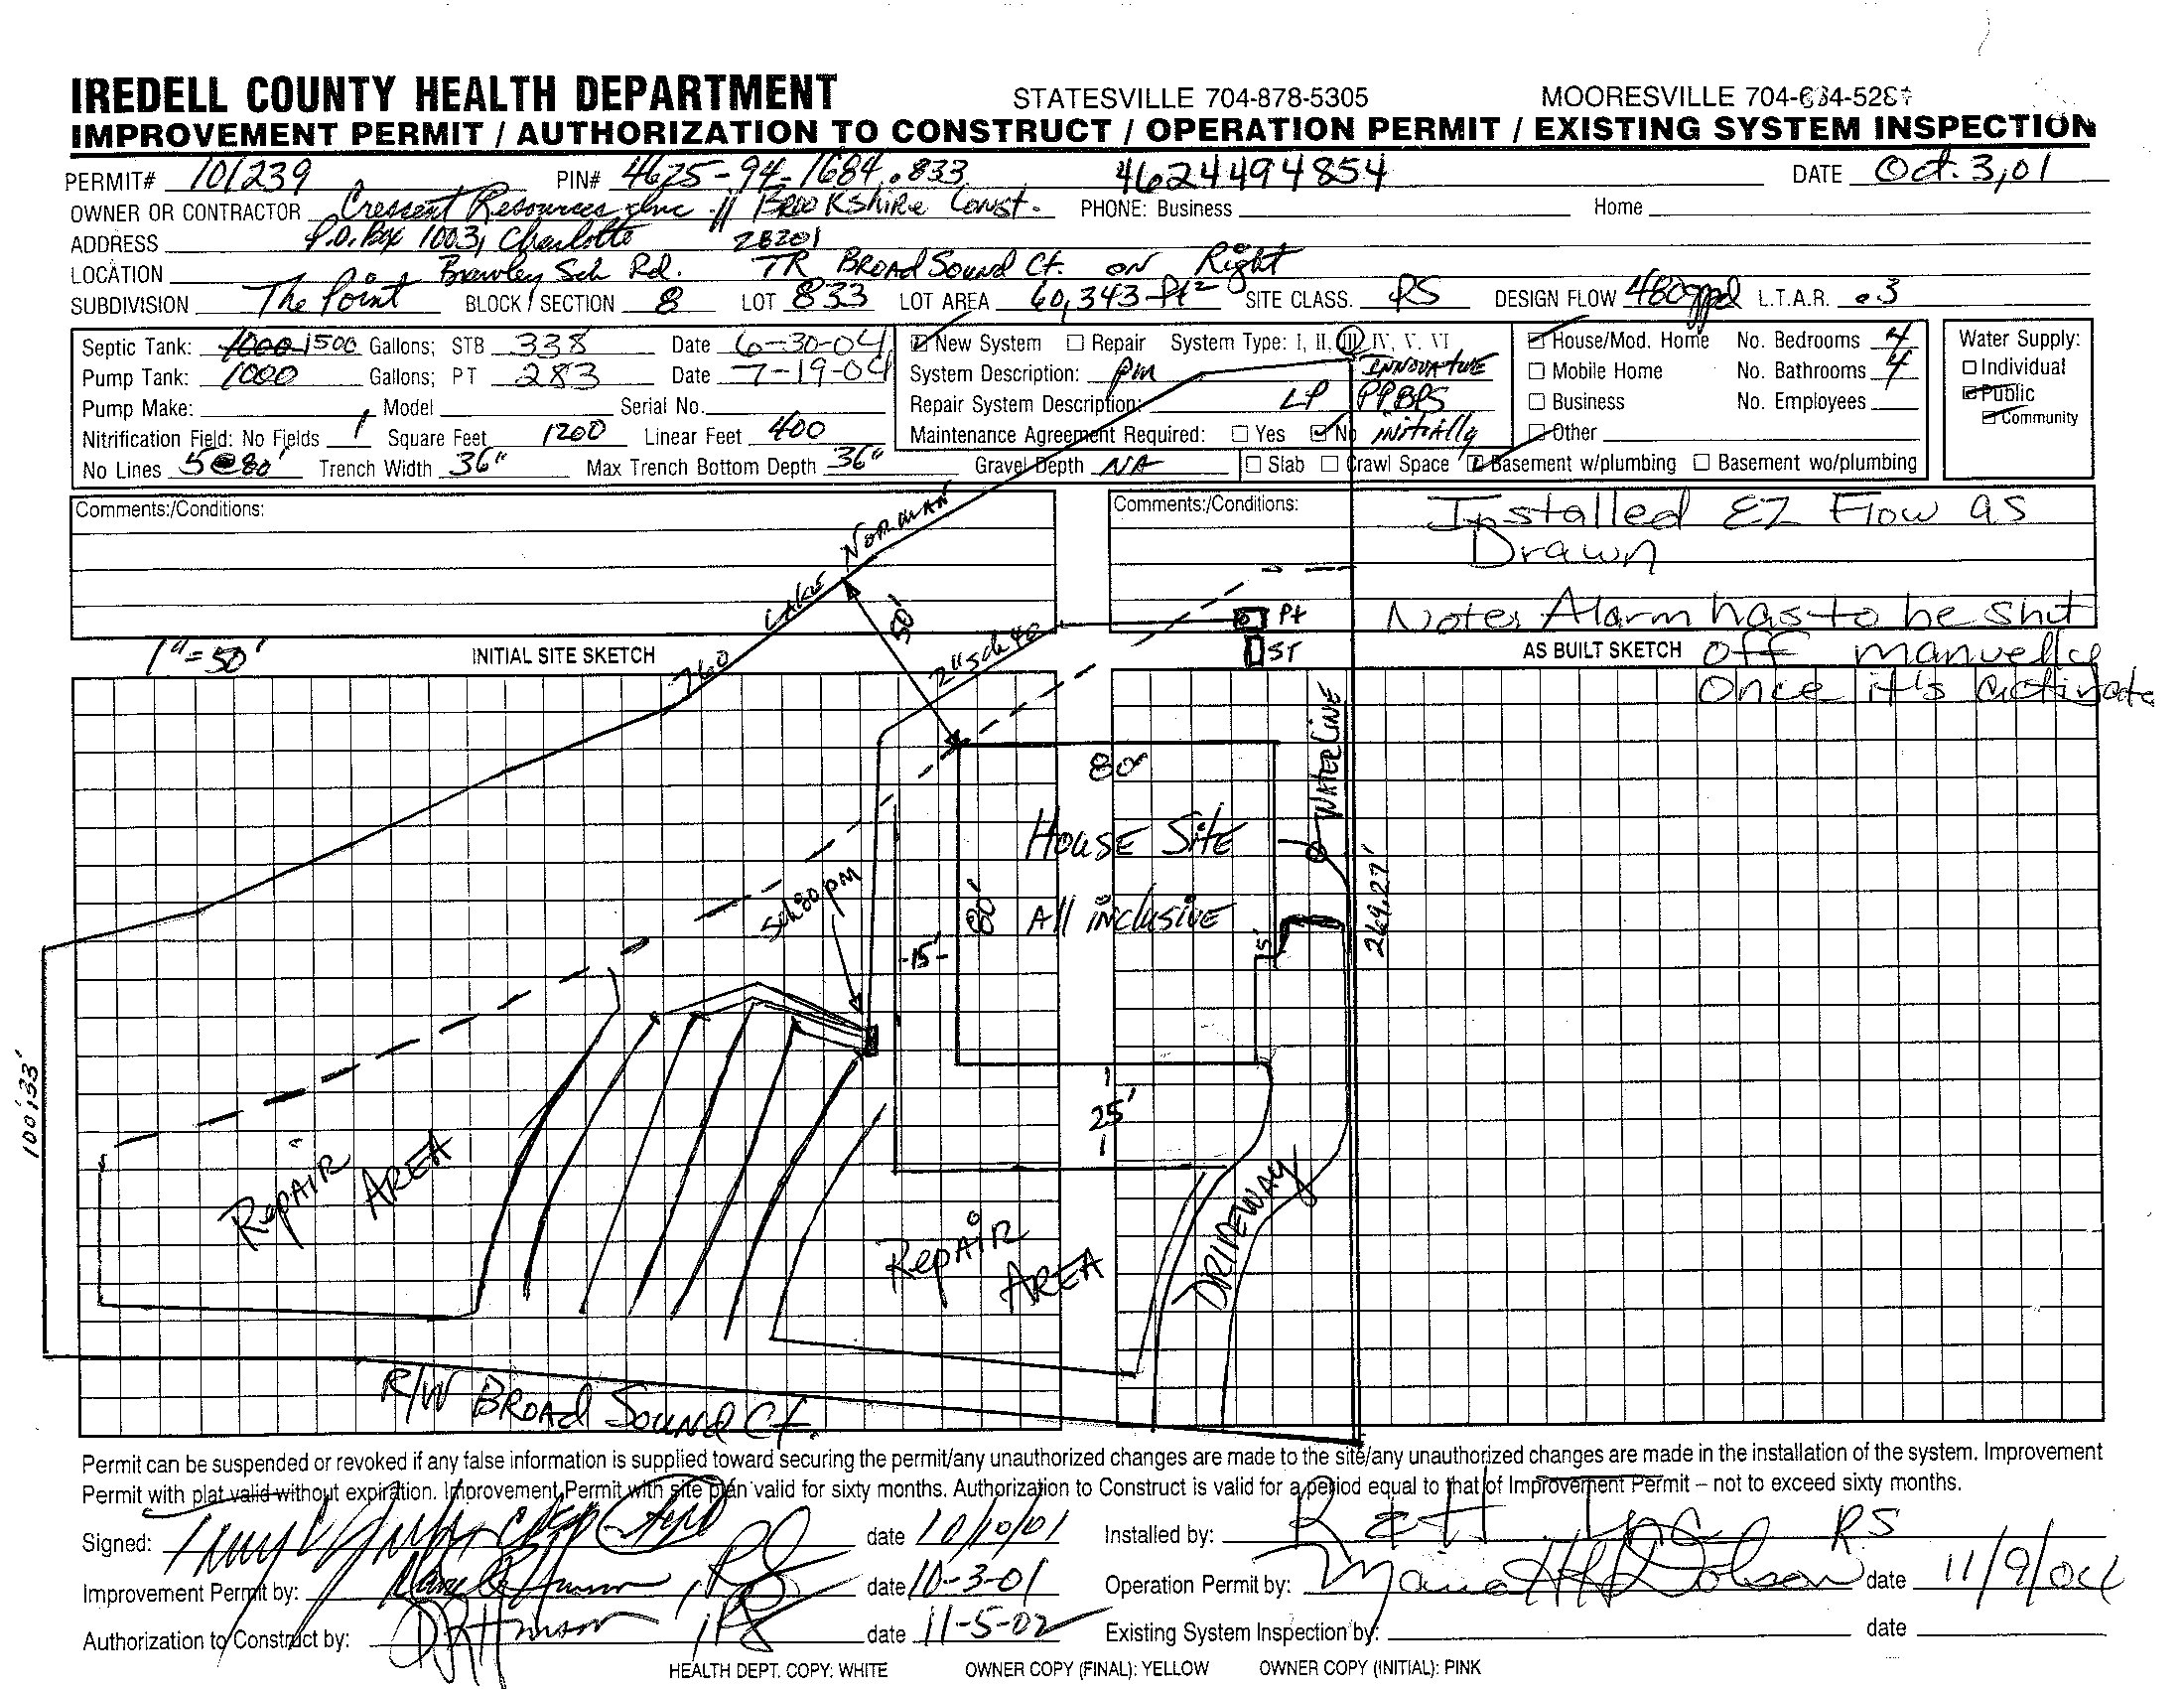 IREDELL COUNTY HEALTH DEPARTMENT STATESVILLE 704-878-5305 MOORESVILLE
IMPROVEMENT PERMIT / AUTHORIZATION TO CONSTRUCT / OPERATION PERMIT / EXISTING SYSTEM INSPECTION
PERMIT# 101239 PIN# 4625-94-1684.833 4624494854 DATE Oct. 3, 01
OWNER OR CONTRACTOR Crescent Resources, Inc // BROOKSHIRE CONST. PHONE: Business Home
ADDRESS P.O. Box 1003, Charlotte 28201
LOCATION Brawley Sch Rd. TR BROAD Sound Ct. ON Right
SUBDIVISION The Point BLOCK / SECTION 8 LOT 833 LOT AREA 60,343 ft² SITE CLASS. PS DESIGN FLOW 480gpd L.T.A.R. .3
Septic Tank: 1000 1500 Gallons; STB 338 Date 6-30-04
Pump Tank: 1000 Gallons; PT 283 Date 7-19-04
Pump Make: Model Serial No.
Nitrification Field: No Fields 1 Square Feet 1200 Linear Feet 400
No Lines 5@80' Trench Width 36" Max Trench Bottom Depth 36" Gravel Depth NA
New System Repair System Type: I, II, III, IV, V, VI
System Description: PM INNOVATIVE
Repair System Description: LP PPBPS
Maintenance Agreement Required: Yes No initially
Slab Crawl Space Basement w/plumbing Basement wo/plumbing
House/Mod. Home No. Bedrooms 4
Mobile Home No. Bathrooms 4
Business No. Employees
Other
Water Supply:
Individual
Public
Community
Comments:/Conditions:
Comments:/Conditions: Installed EZ Flow as
Drawn
Note: Alarm has to be shut
off manuelly
once it's activate
1"=50' INITIAL SITE SKETCH
AS BUILT SKETCH
760 LAKE NORMAN
50'
2" sch 40
Pt
ST
WATER LINE
80'
HOUSE Site
All inclusive
80'
sch 80 PM
-15-
15'
269.27'
25'
100.33'
RepAiR AREA
RepAiR AREA
DRIVEWAY
R/W BROAD SOUND Ct.
Permit can be suspended or revoked if any false information is supplied toward securing the permit/any unauthorized changes are made to the site/any unauthorized changes are made in the installation of the system. Improvement
Permit with plat valid without expiration. Improvement Permit with site plan valid for sixty months. Authorization to Construct is valid for a period equal to that of Improvement Permit – not to exceed sixty months.
Signed: date 10/10/01 Installed by: R & H Inc RS
Improvement Permit by: date 10-3-01 Operation Permit by: date 11/9/04
Authorization to Construct by: date 11-5-02 Existing System Inspection by: date
HEALTH DEPT. COPY: WHITE OWNER COPY (FINAL): YELLOW OWNER COPY (INITIAL): PINK